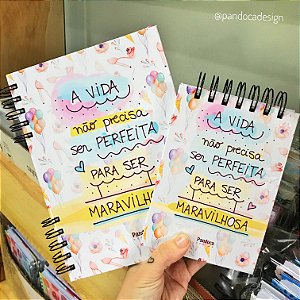 @pandocadesign
A VIDA
não precisa
ser PERFEITA
PARA SER
MARAVILHOSA
A VIDA
não precisa
ser PERFEITA
PARA SER
MARAVILHOSA
Pandoca